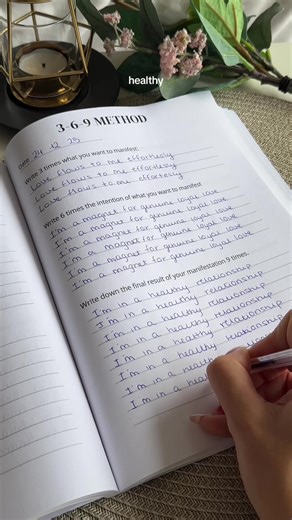 healthy
3-6-9 METHOD
Date 24.12.25
Write 3 times what you want to manifest
Love flows to me effortlesly
Love flows to me effortlesly
Love flows to me effortlesly
Write 6 times the intention of what you want to manifest
I'm a magnet for genuine loyal love
I'm a magnet for genuine loyal love
I'm a magnet for genuine loyal love
I'm a magnet for genuine loyal love
I'm a magnet for genuine loyal love
I'm a magnet for genuine loyal love
Write down the final result of your manifestation 9 times.
I'm in a healthy relationship
I'm in a healthy relationship
I'm in a healthy relationship
I'm in a healthy relationship
I'm in a healthy relationship
I'm in a healthy relationship
I'm in a healthy
I'm in a